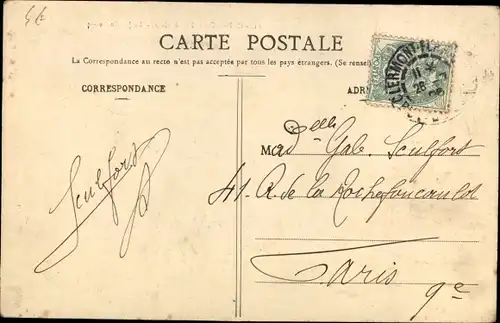 CARTE POSTALE
La Correspondance au recto n'est pas acceptée par tous les pays étrangers. (Se rensei
CORRESPONDANCE
ADR
CLERMONT-F
11
28
Mad elle Gab. Sculfort
41 R. de la Rochefoucault
Paris
9e
Sculfort